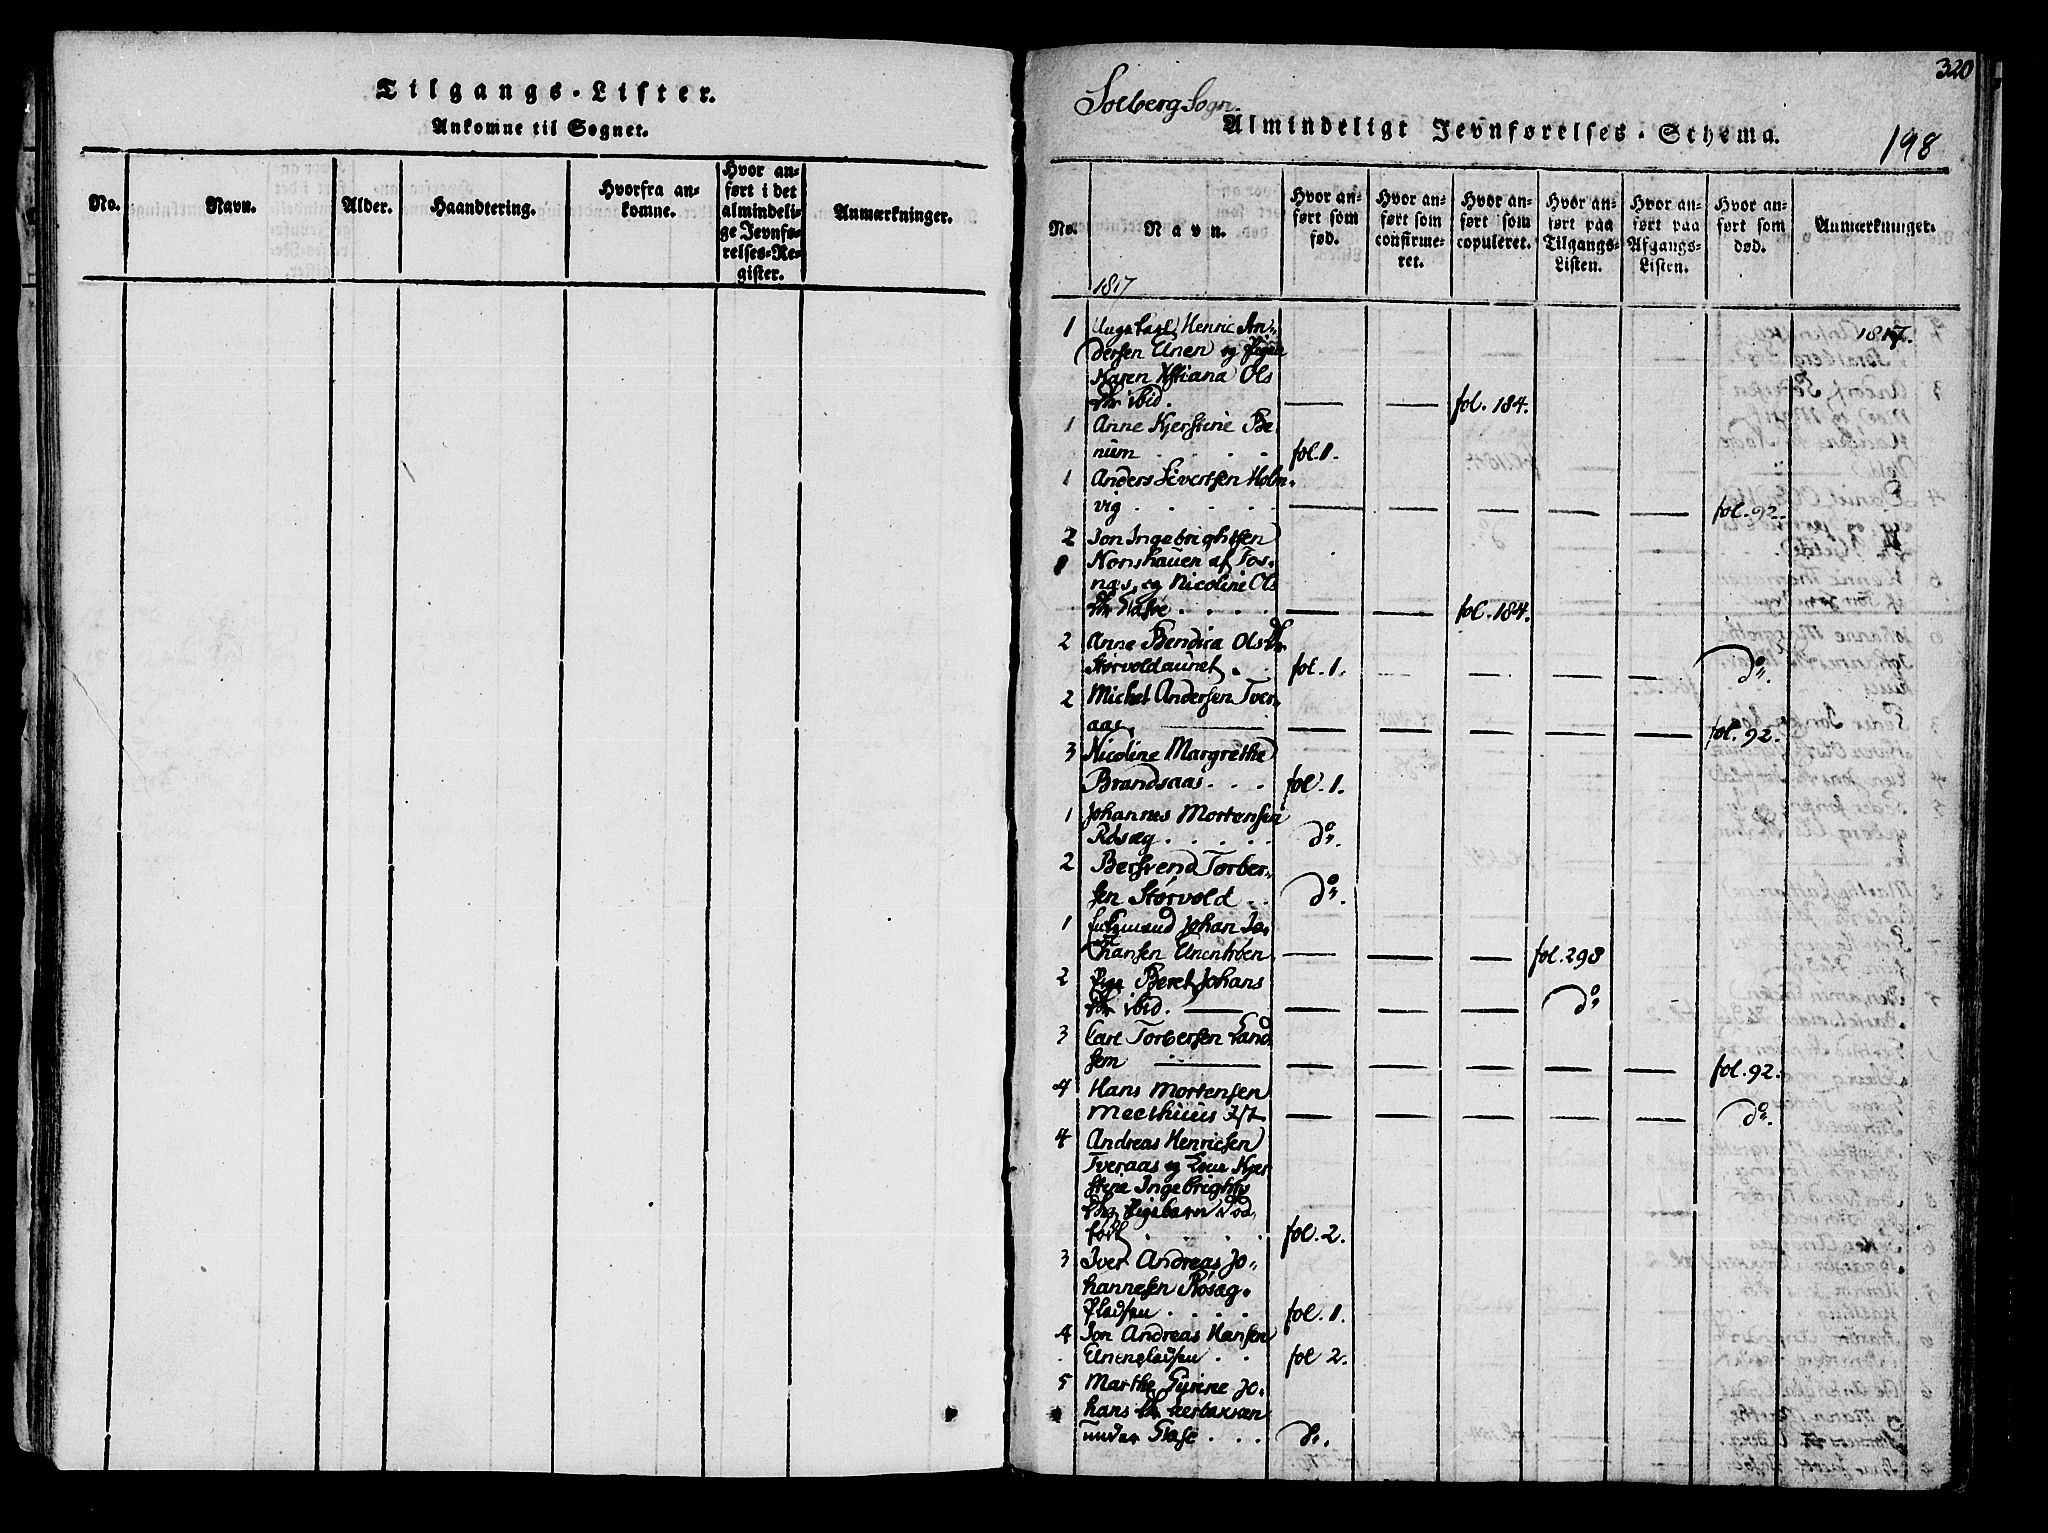 Tilgangs-Lister.
Ankomne til Sognet.
No.
Navn.
Alder.
Haandtering.
Hvorfra an-
komne.
Hvor an-
ført i det
almindeli-
ge Jevnfø-
relses-Re-
gister.
Anmærkninger.
320
Solberg Sogn.
Almindeligt Jevnførelses-Schema.
198
No.
Navn.
Hvor an-
ført som
fød.
Hvor an-
ført som
confirme-
ret.
Hvor an-
ført som
copuleret.
Hvor an-
ført paa
Tilgangs-
Listen.
Hvor an-
ført paa
Afgangs-
Listen.
Hvor an-
ført som
død.
Anmærkninger.
1817
1 Henric An-
dersen Unen og Pigen 1817.
Karen Ols
ibid. — — fol. 184.
1 Anne Kjerstine Be-
num . . . . fol. 1.
1 Anders Sivertsen Holm-
vig . . . . . — — — — — fol. 92.
2 Jon Ingebrightsen
af Fos-
næs, og Nicoline Ols
. . . . — — fol. 184.
2 Anne Bendica Ols
Størvoldaunet . . fol. 1. — — — — do.
2 Michel Andersen Tver-
aas — — — — — — fol. 92.
3 Nicoline Margrethe
Brandsaas . . . fol. 1.
1 Johannes Mortensen
Rosæg . . . . . do.
2 Bersvend Torber-
sen Størvold . . do.
1 Johan Jo-
hansen — — — fol. 293
2 Pige Beret Johans
ibid. — — — — do
3 Carl Torbersen Land-
sem — — — — — — fol. 92.
4 Hans Mortensen
Meethuus — — — — — do.
4 Andreas Henricsen
Tveraas og Kjer-
stine Ingebrights
Pigebarn Død-
født . . . . . fol. 2.
3 Iver Andreas Jo-
hannesen Rosæg-
Pladsen . . . . fol. 1.
4 Jon Andreas Hansen
Unenpladsen . . fol 2.
5 Marthe Jo-
hans
under . . . do.